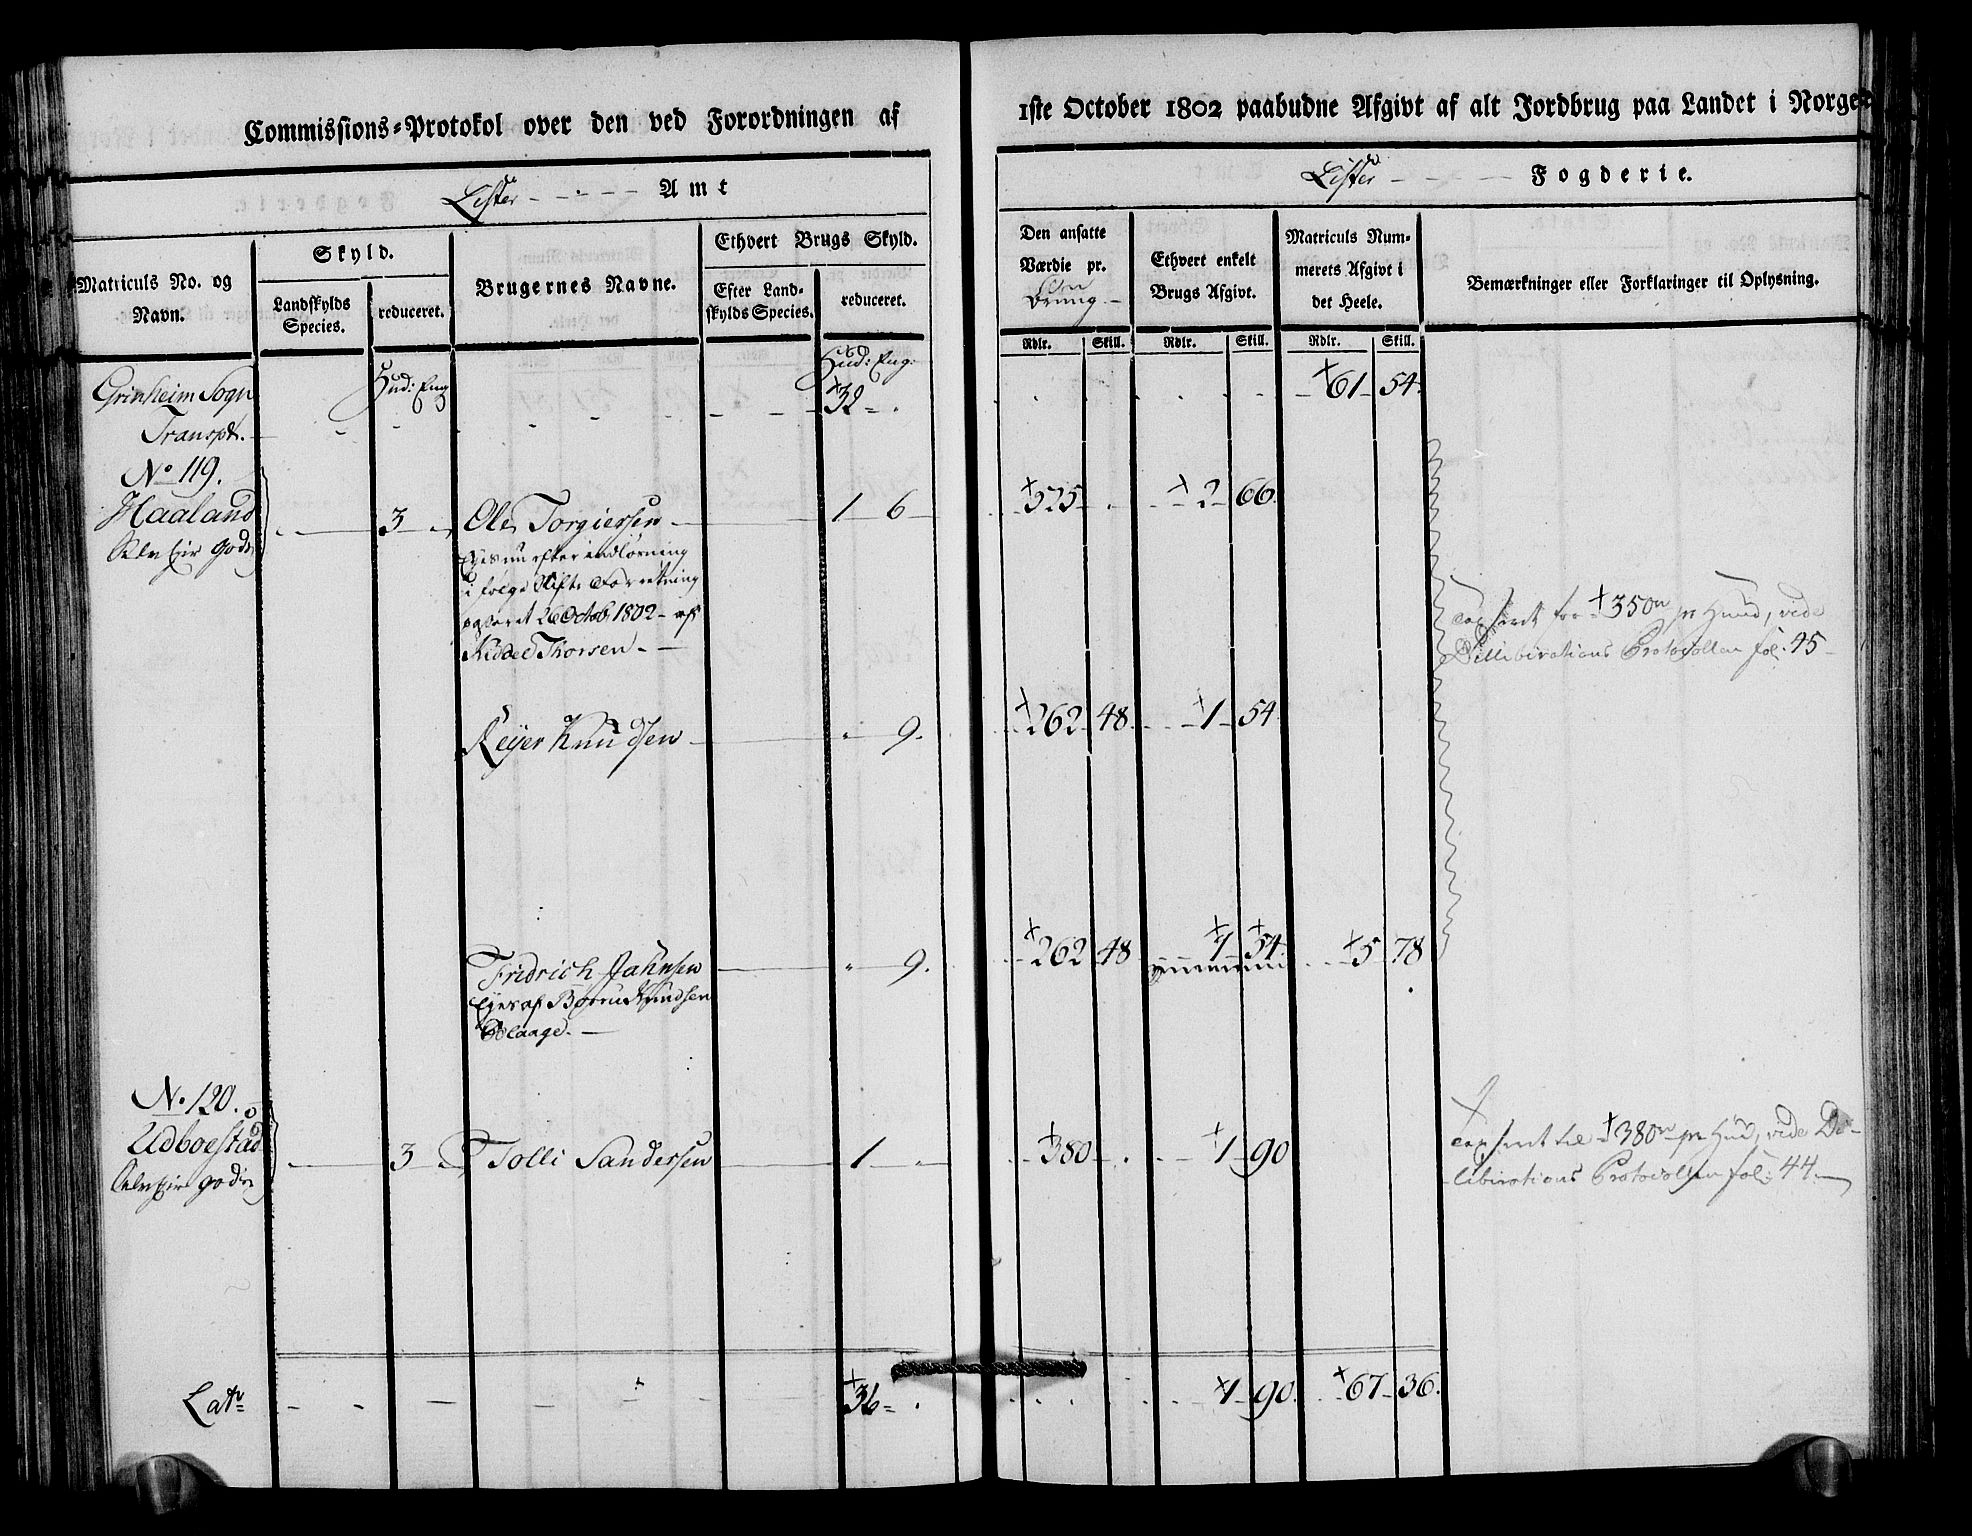 Commissions-Protokol over den ved Forordningen af
1ste October 1802 paabudne Afgivt af alt Jordbrug paa Landet i Norge
Lister Amt
Lister Fogderie.
Matriculs No. og
Navn.
Skyld.
Landskylds
Species.
reduceret.
Brugernes Navne.
Ethvert Brugs Skyld.
Efter Land-
skylds Species.
reduceret.
Den ansatte
Værdie pr.
Ethvert enkelt
Brugs Afgivt.
Matriculs Num-
merets Afgivt i
det Heele.
Bemærkninger eller Forklaringer til Oplysning.
Rdlr. Skill. Rdlr. Skill. Rdlr. Skill.
Hud: Eng: Hud: Eng:
Grinheim Sogn
Transpt. 32 61 54
No 119.
Haaland 3 Ole Torgiersen 1 6 525 2 66
efter indløsning
i følge Skifte Forretning
passeret 26 Octob. 1802 af
Kiddel Thorsen
taxseret for 350 pr Hud, vide
Dillibirations Protocollen fol. 45
Reijer Knudsen 9. 262 48 1 54
Fridrich Jahnsen 9. 262 48 1 54 5 78
Eyes af Børru Knudsen
No. 120.
Udboestad 3 Tolli Sandersen 1 380 1 90
taxseret til 380 pr Hud, vide De-
libirations Protocollen fol: 44
Lat. 36 1 90 67 36.